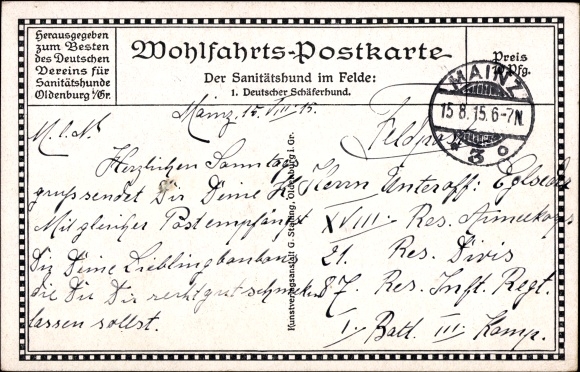 Herausgegeben
zum Besten
des Deutschen
Vereins für
Sanitätshunde
Oldenburg i/Gr.
Wohlfahrts-Postkarte
Der Sanitätshund im Felde:
1. Deutscher Schäferhund.
Preis
10 Pfg.
MAINZ
15.8.15.6-7N.
* 3 c
Mainz, 15. VIII. 15.
Feldpost
M. l. N.
Herzlichen Sonntags
gruss sendet Dir Deine
Mit gleicher Post empfängst
Du Deine Lieblingbonbons
die Du Dir recht gut schmecken
lassen sollst.
Herrn Unteroff:
XVIII. Res. Armeekorps
21. Res. Divis
87. Res. Inft. Regt.
I. Batl. III Komp.
Kunstverlagsanstalt G. Stalling, Oldenburg i. Gr.